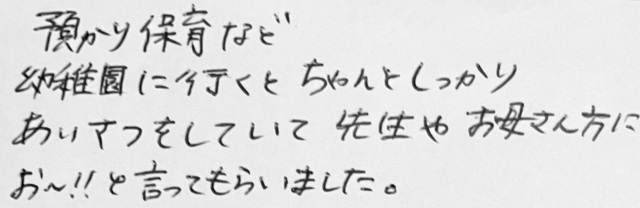 預かり保育など
幼稚園に行くとちゃんとしっかり
あいさつをしていて 先生や お母さん方に
お～!!と言ってもらいました。